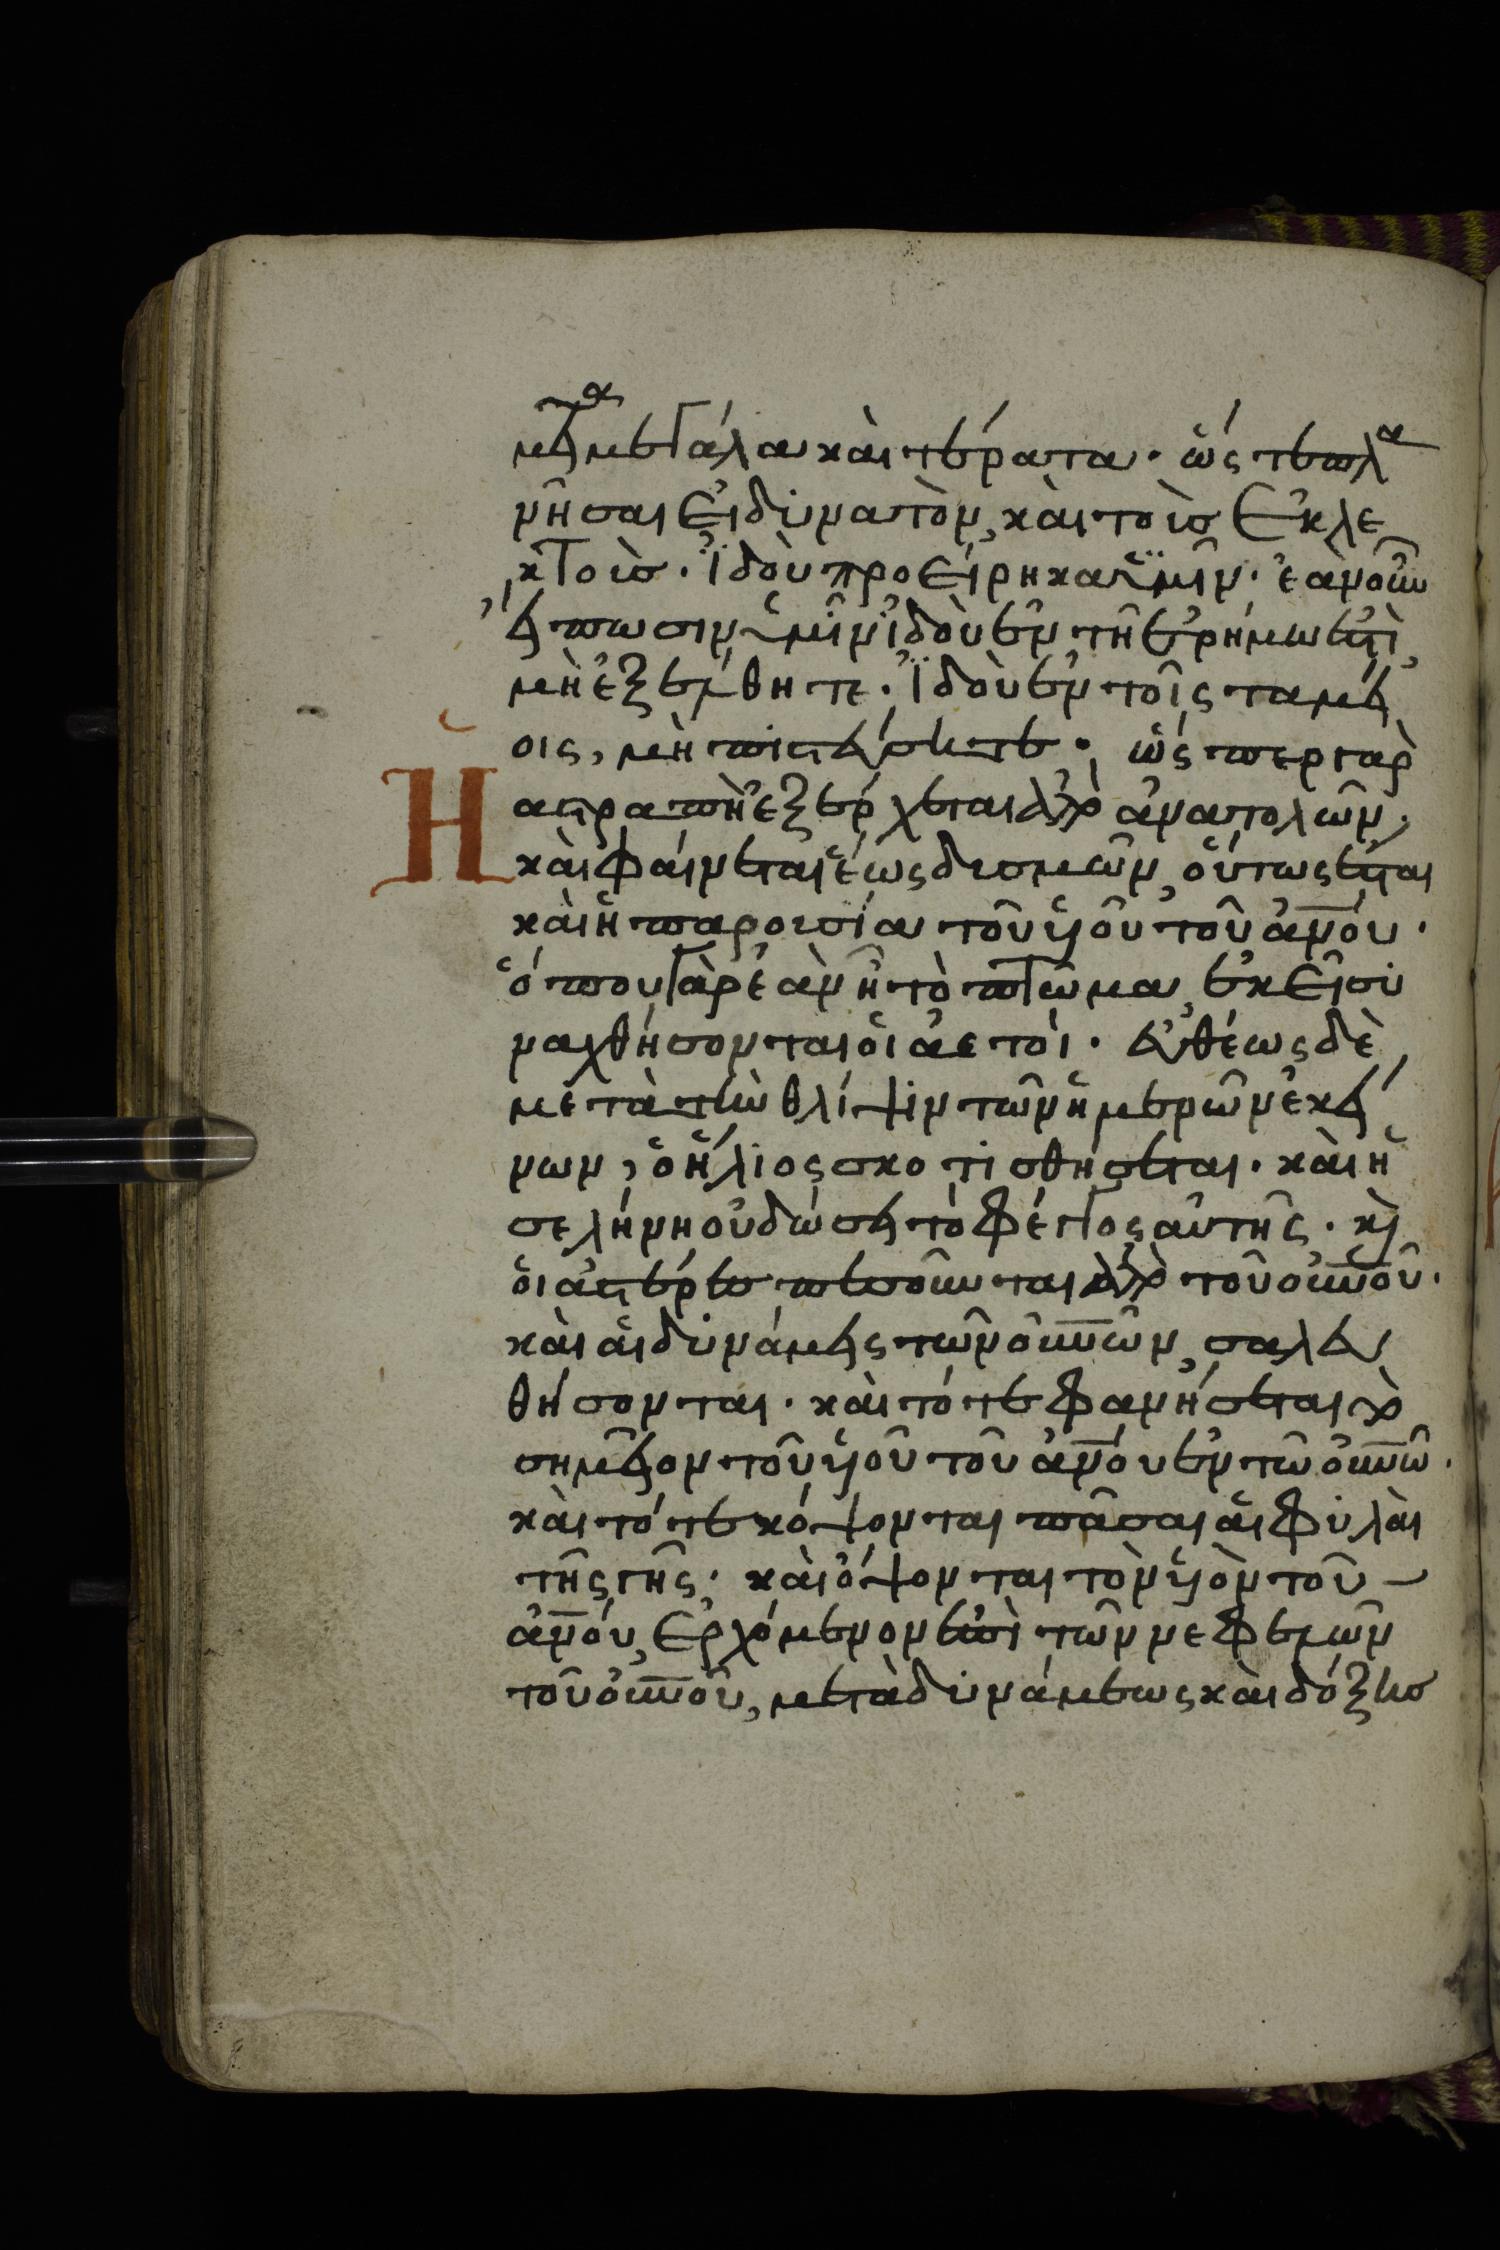 μεῖα μεγάλα καὶ τέρατα· ὥς τε πλα
νῆσαι εἰ δυνατὸν, καὶ τοὺσ ἐκλε
κτοὺσ. ἰδοὺ προείρηκα ὑμῖν· ἐὰν οὖν
εἴπωσιν ὑμῖν ἰδοὺ ἐν τῆ ἐρήμω ἐστὶ,
μὴ ἐξέλθητε. ἰδοὺ ἐν τοῖς ταμεί
οις, μὴ πιστεύσητε· ὥς περ γὰρ
Ἡ ἀστραπὴ ἐξέρχεται ἀπὸ ἀνατολῶν,
καὶ φαίνεται ἕως δυσμῶν, οὕτως ἔσται
καὶ ἡ παρουσία τοῦ υἱοῦ τοῦ ἀν̅ου·
ὅπου γὰρ ἐὰν ἦ τὸ πτῶμα, ἐκεῖ συ
ναχθήσονται οἱ ἀετοί. εὐθέως δὲ
μετὰ τὴν θλίψιν τῶν ἡμερῶν ἐκεί
νων, ὁ ἥλιος σκοτισθήσεται. καὶ ἡ
σελήνη οὐ δώσει τὸ φέγγος αὐτῆς. κὶ
οἱ ἀστέρεσ πεσοῦνται ἀπὸ τοῦ οὐν̅οῦ.
καὶ αἱ δυνάμεις τῶν οὐν̅ῶν, σαλευ
θήσονται. καὶ τότε φανήσεται τὸ
σημεῖον τοῦ υἱοῦ τοῦ ἀν̅ου ἐν τῶ οὐν̅ῶ.
καὶ τότε κόψονται πᾶσαι αἱ φυλαὶ
τῆς γῆς. καὶ ὄψονται τὸν υἱὸν τοῦ
ἀν̅ου, ἐρχόμενον ἐπὶ τῶν νεφελῶν
τοῦ οὐν̅οῦ, μετὰ δυνάμεως καὶ δόξησ